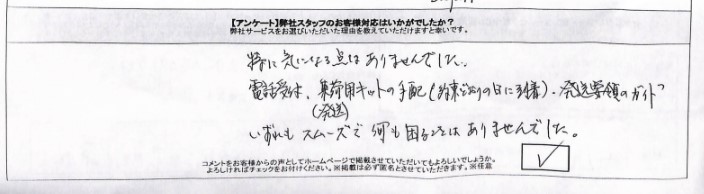 【アンケート】弊社スタッフのお客様対応はいかがでしたか？
弊社サービスをお選びいただいた理由を教えていただけますと幸いです。
特に気になる点はありませんでした。
電話受付、集荷用キットの手配(約束通りの日に到着)、発送要領のガイド
(発送)
いずれもスムーズで何も困ることはありませんでした。
コメントをお客様からの声としてホームページで掲載させていただいてもよろしいでしょうか。
よろしければチェックをお付けください。※掲載は必ず匿名とさせていただきます。※任意